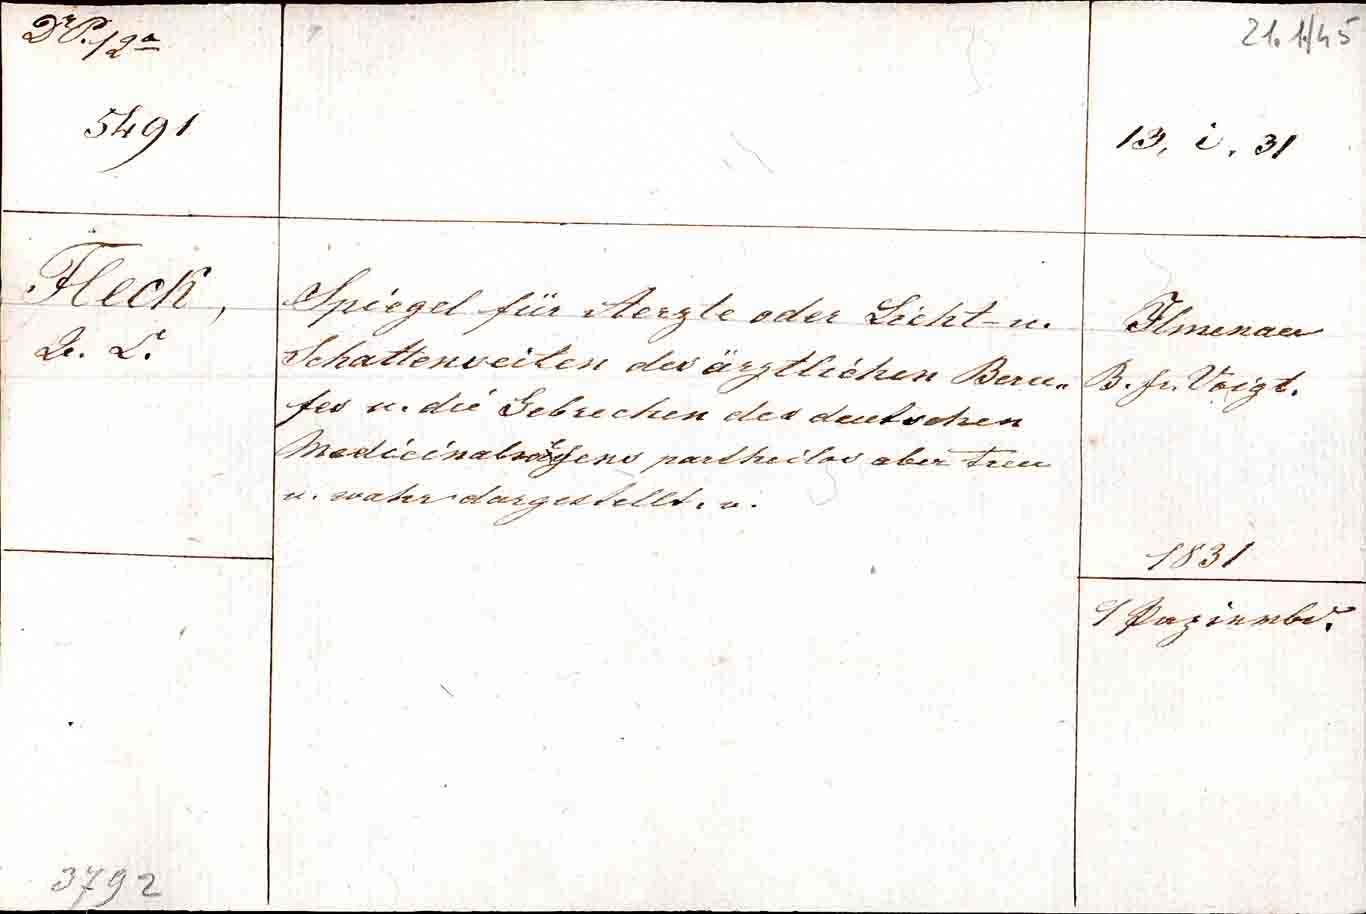 Dr P. 12a
5491
21. 1/45
13, i. 31
Fleck,
Spiegel für Aerzte oder Licht- u.
Schattenseiten des ärztlichen Beru-
fes u. die Gebrechen des deutschen
Medicinalwesens partheilos aber treu
u. wahr dargestellt. v.
Ilmenau
B. fr. Voigt.
1831
3792